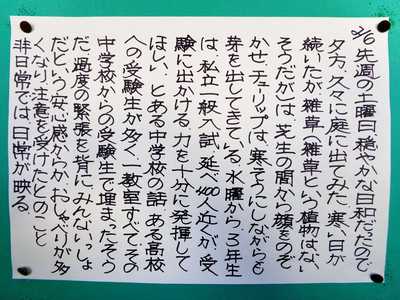 2/6 先週の土曜日、穏やかな日和だたので
夕方、久々に庭に出てみた。寒い日が
続いたが、雑草（雑草という植物はない
そうだが）は、芝生の間から顔をのぞ
かせ、チューリップは、寒そうにしながらも
芽を出してきている。水曜から、3年生
は、私立一般入試。延べ400人近くが、受
験に出かける。力を十分に発揮して
ほしい。とある中学校の話。ある高校
への受験生が多く、一教室すべてその
中学校からの受験生で埋まったそう
だ。過度の緊張を背に、みんないっしょ
だという安心感からか、おしゃべりが多
くなり、注意を受けたとのこと。
非日常では、日常が映る。